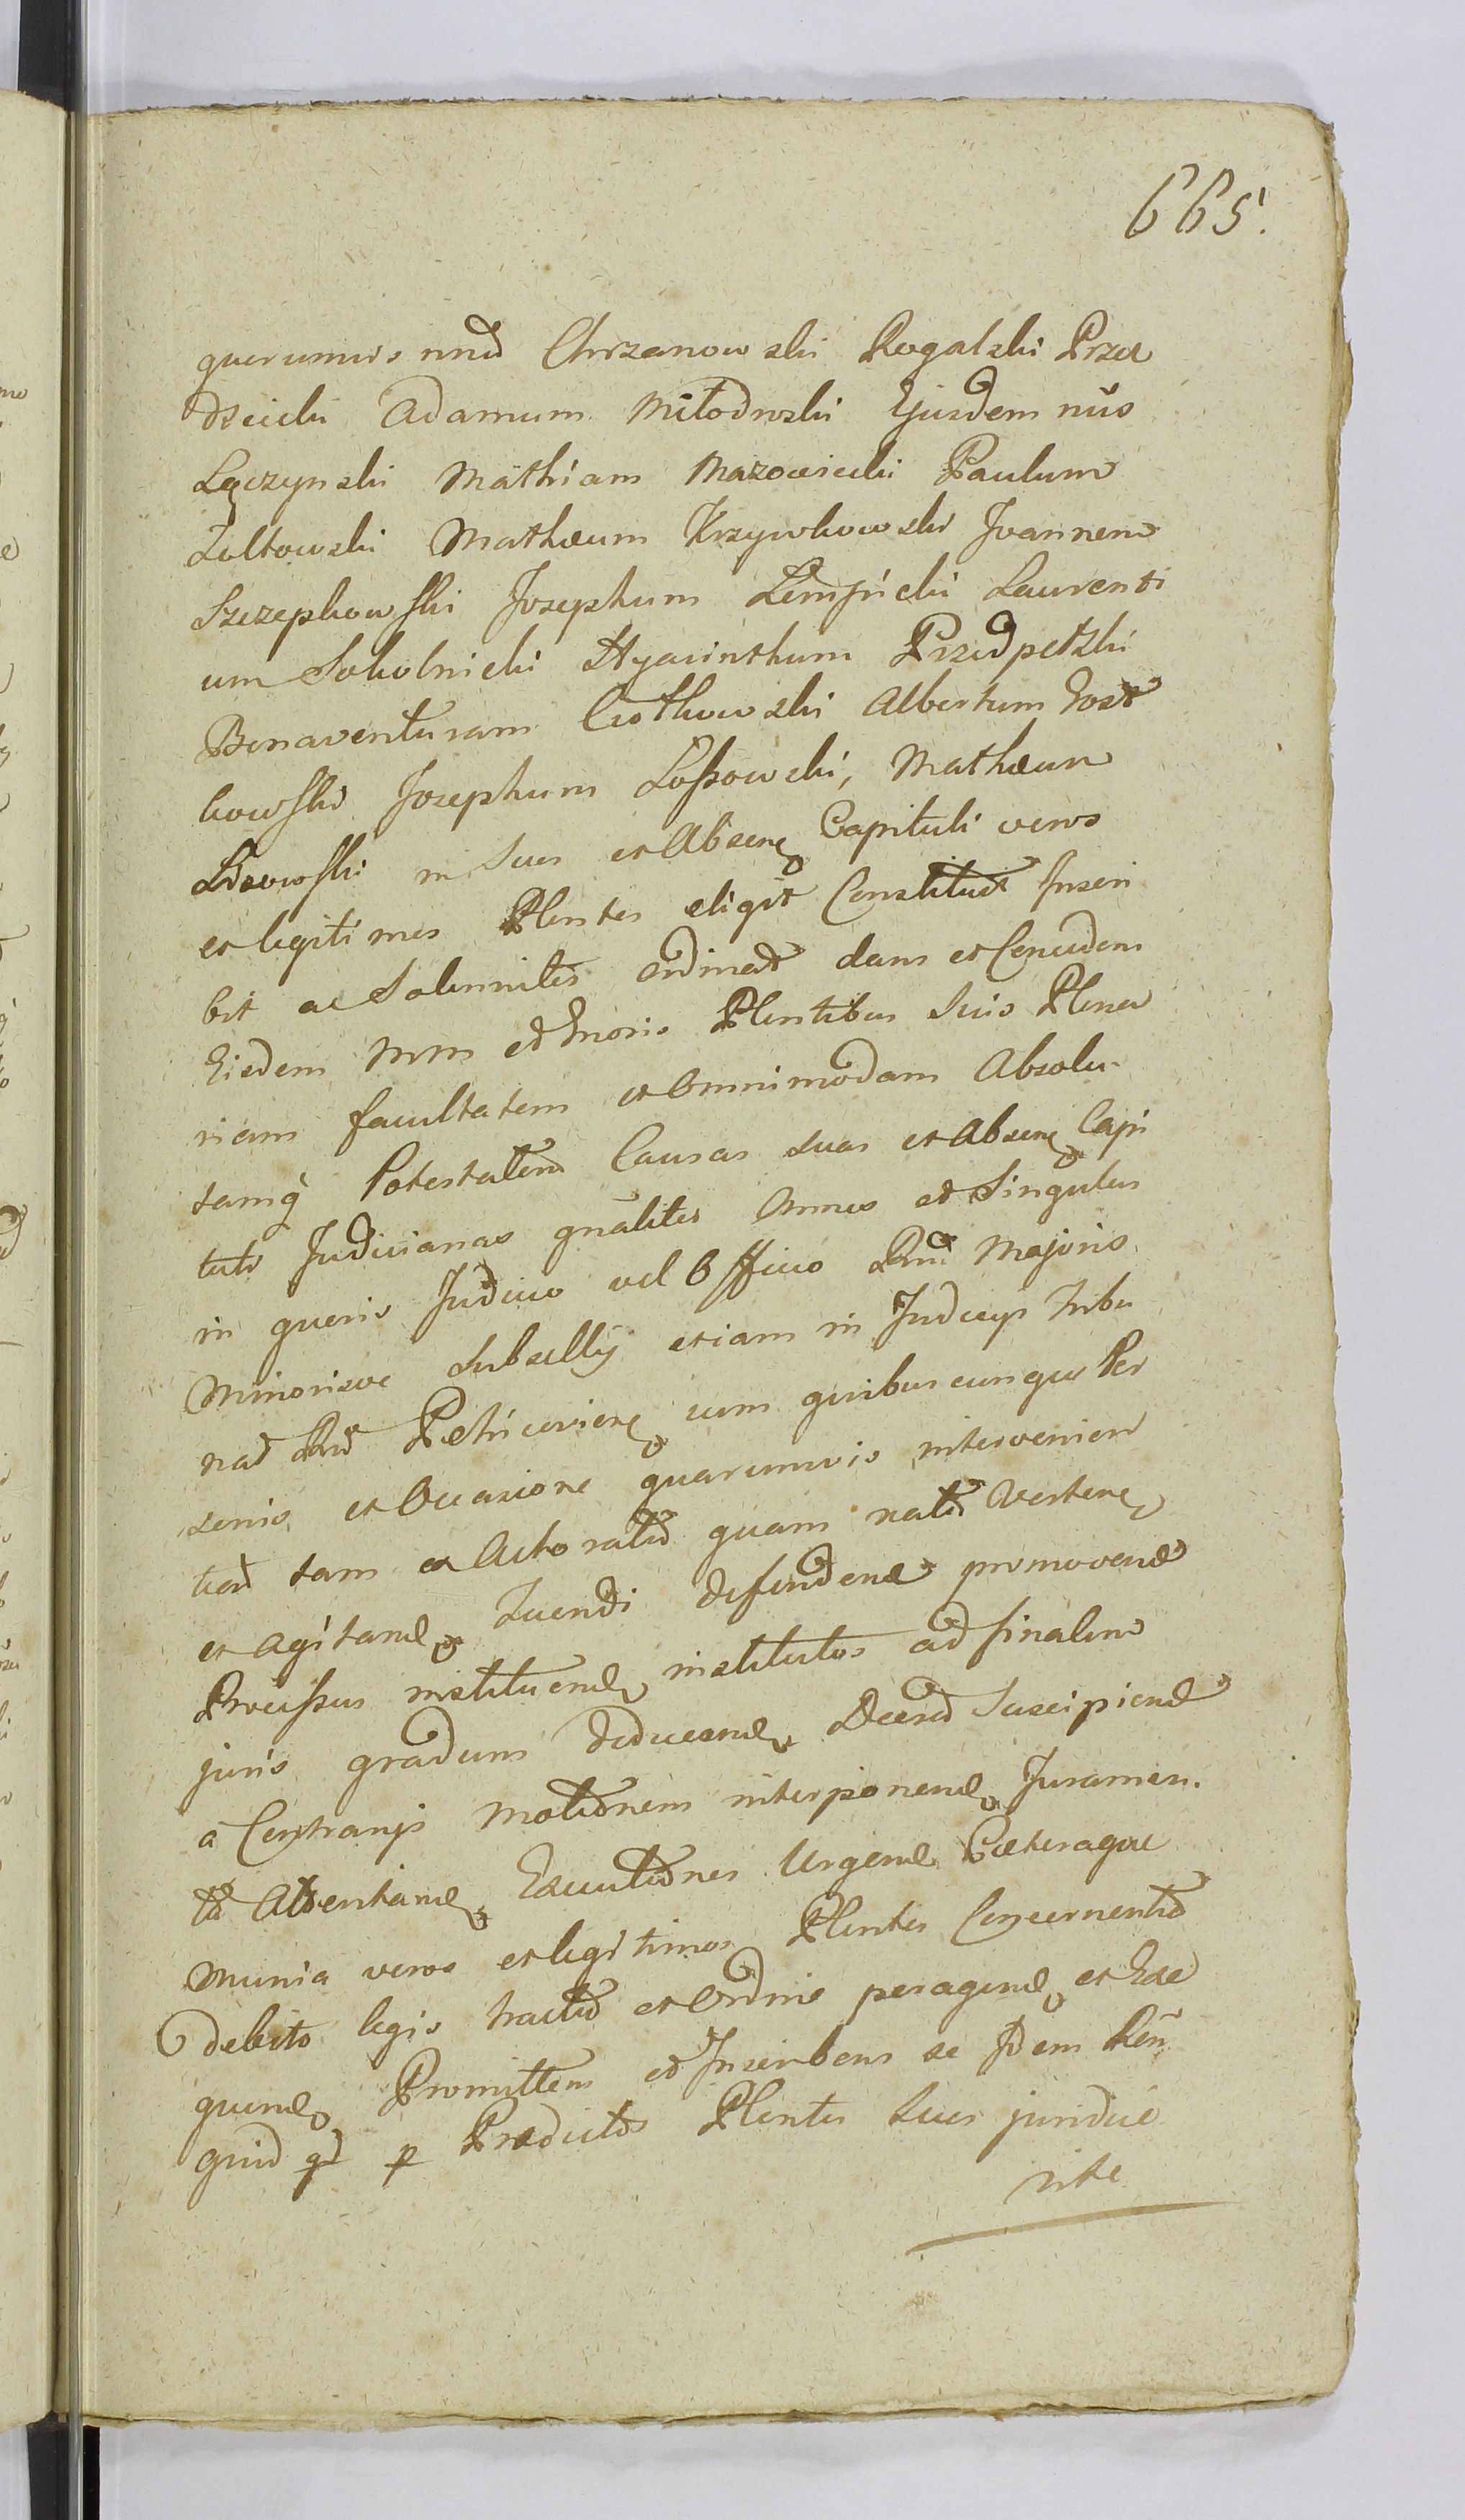 665.
querumvis nnd Chrzanowski Rogalski Prza
dzicki Adamum Miłodrowski Ejusdem nũs
Łączynski Mathiam Mazowiecki Paulum
Zoltowski Mathæum Krzywkowski Joannem
Szczepkowski Josephum Łempicki Laurenti
um Sokolnicki Hyacinthum Przedpełski
Benaventuram Ciotkowski Albertum Gost
kowski Josephum Lossowski, Mathæum
Lisowski in Suos et Absenę Capituli veros
et legitimos Plentes eligit Constituit Inscri
bit ac Solemniter ordinat dans et Conceden
Eisdem Mm et Gnoris Plentibus Suis Plena
riam facultatem et Omnimodam Absolu-
tamq̃ Potestatem Causas suas et Absenę Capi
tuli Judicianas gnaliter Omnes et Singulas
in quovis Judicio vel Officio Rni Majoris
Minorisve Subsellij etiam in Judicijs Tribu
nad Rni Petricoviene cum quibuscunque Per
sonis et Occasione quarumvis intervenien
tiad tam ex Actoratu quam reatu Vertene
et agitand Tuendi defendend promovend
Processus instituend institutos ad finalem
juris gradum deducend Decreta Suscipiend
à Contrarijs Motionem interponend Juramen.
ta Attentand Executiones Urgend Cæteraque
Munia veros et legitimos Plentes Concernentia
debito legis tractu et Ordine peragend et Exe
quend Promittens et Inscribens se Idem Ren
quid qd p Prædictos Plentes Suos juridice
rite